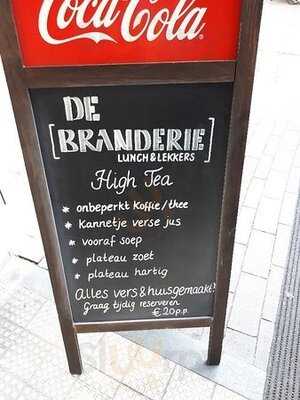 Coca-Cola
DE
[BRANDERIE]
LUNCH & LEKKERS
High Tea
* onbeperkt koffie/thee
* Kannetje verse jus
* vooraf soep
* plateau zoet
* plateau hartig
Alles vers & huisgemaakt!
Graag tijdig reserveren
€20 p.p.